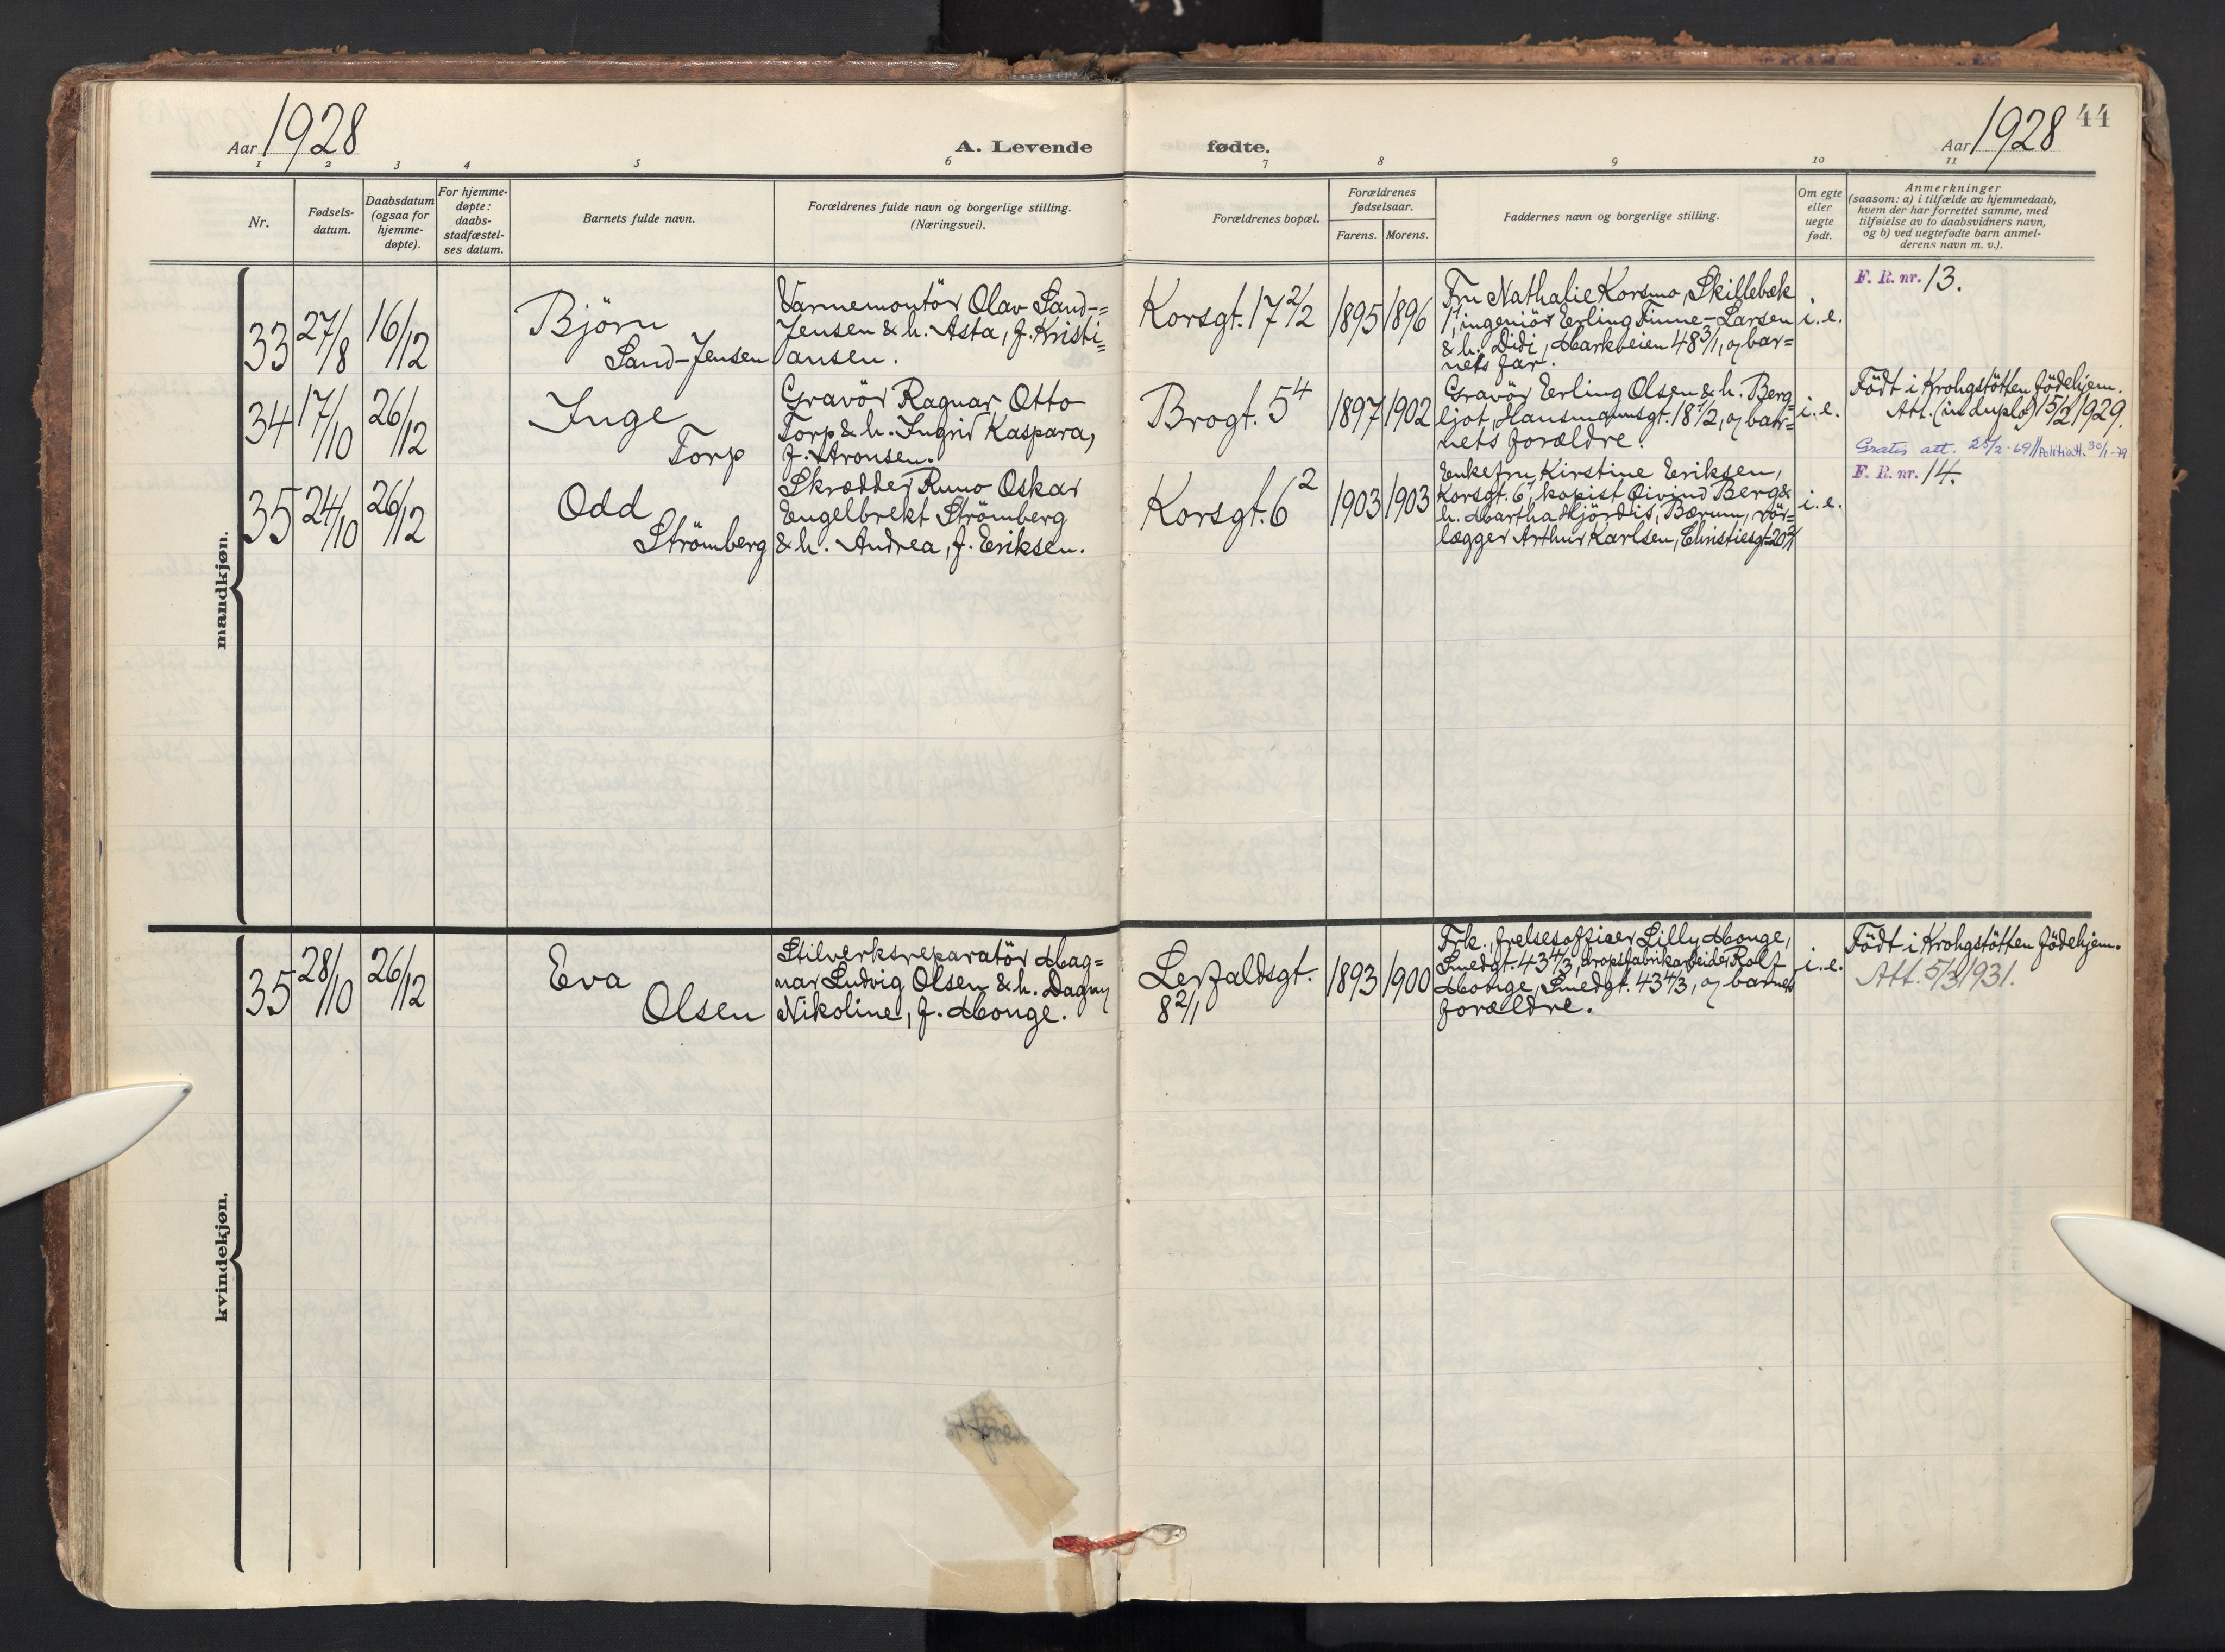 Aar 1928
A. Levende fødte.
Aar 1928
44
1 2 3 4 5 6 7 8 9 10 11
Nr.
Fødsels-
datum.
Daabsdatum
(ogsaa for
hjemme-
døpte).
For hjemme-
døpte:
daabs-
stadfæstel-
ses datum.
Barnets fulde navn.
Forældrenes fulde navn og borgerlige stilling.
(Næringsvei).
Forældrenes bopæl.
Forældrenes
fødselsaar.
Farens. Morens.
Faddernes navn og borgerlige stilling.
Om egte
eller
uegte
født.
Anmerkninger
(saasom: a) i tilfælde av hjemmedaab,
hvem der har forrettet samme, med
tilføielse av to daabsvidners navn,
og b) ved uegtefødte barn anmel-
derens navn m. v.).
mandkjøn.
33
27/8
16/12
Björn
Sand-Jensen
Varmemontör Olav Sand-=
Jensen & h. Asta, f. Kristi=
ansen.
Korsgt. 17 2/2
1895
1896
Fru Nathalie Korsmo, Skillebæk
1, ingeniör Erling Finne-Larsen
& h. Didi, Markveien 48 3/1, og bar=
nets far.
i. e.
F. R. nr. 13.
34
17/10
26/12
Inge
Torp
Gravör Ragnar Otto
Torp & h. Ingrid Kaspara,
f. Aronsen.
Brogt. 5 4
1897
1902
Gravör Erling Olsen & h. Berg=
ljot, Hausmannsgt. 18 1/2, og bar=
nets forældre.
i. e.
Födt i Krohgstötten födehjem.
Att. (in duplo) 15/2 1929.
Gratis att. 25/2-69 // Politiatt. 30/1-79
35
24/10
26/12
Odd
Strömberg
Skrædder Runo Oskar
Engelbrekt Strömberg
& h. Andrea, f. Eriksen.
Korsgt. 6 2
1903
1903
Enkefru Kirstine Eriksen,
Korsgt. 6, kopist Öivind Berg &
h. Martha Hjördis, Bærum, rör=
lægger Arthur Karlsen, Christiesgt. 20
i. e.
F. R. nr. 14.
kvindekjøn.
35
28/10
26/12
Eva
Olsen
Stilverksreparatör Mag=
nar Ludvig Olsen & h. Dagny
Nikoline, f. Monge.
Lerfaldsgt.
8 2/1
1893
1900
Frk., frelsesofficer Lilly Monge,
Smedgt. 43 4/3, dropsfabrikarbeider Rolf
Monge, Smedgt. 43 4/3, og barnets
forældre.
i. e.
Födt i Krohgstötten födehjem.
Att. 5/3 1931.